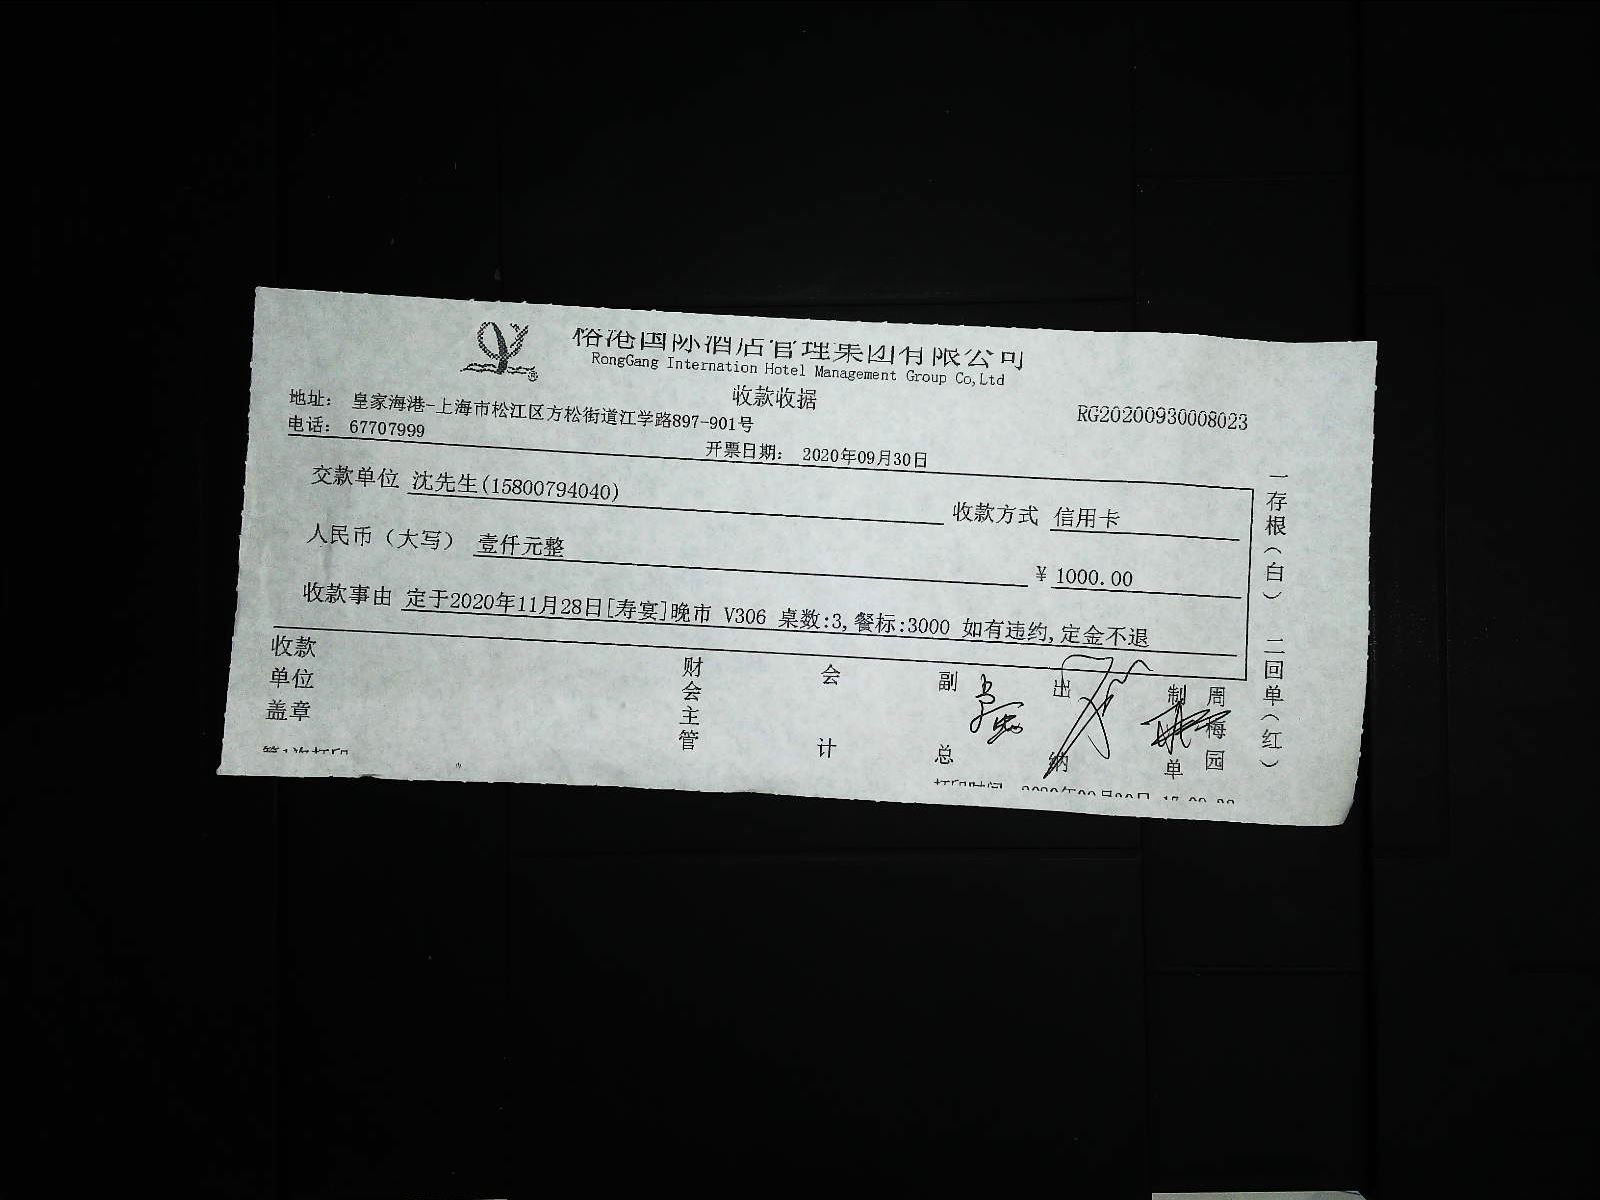 榕港国际酒店管理集团有限公司
RongGang Internation Hotel Management Group Co,Ltd
收款收据
地址： 皇家海港-上海市松江区方松街道江学路897-901号
RG20200930008023
电话： 67707999
开票日期： 2020年09月30日
交款单位 沈先生(15800794040)
收款方式 信用卡
人民币（大写） 壹仟元整
¥ 1000.00
收款事由 定于2020年11月28日[寿宴]晚市 V306 桌数:3,餐标:3000 如有违约,定金不退
收款单位盖章
财会主管
会计
副总
出纳
制单
周梅园
一存根（白） 二回单（红）
第1次打印
打印时间